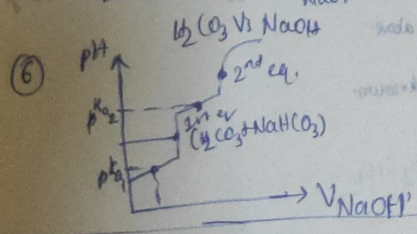 H2CO3 Vs NaOH
6
pH
2nd eq.
pKa2
1st eq
(H2CO3+NaHCO3)
pKa1
VNaOH